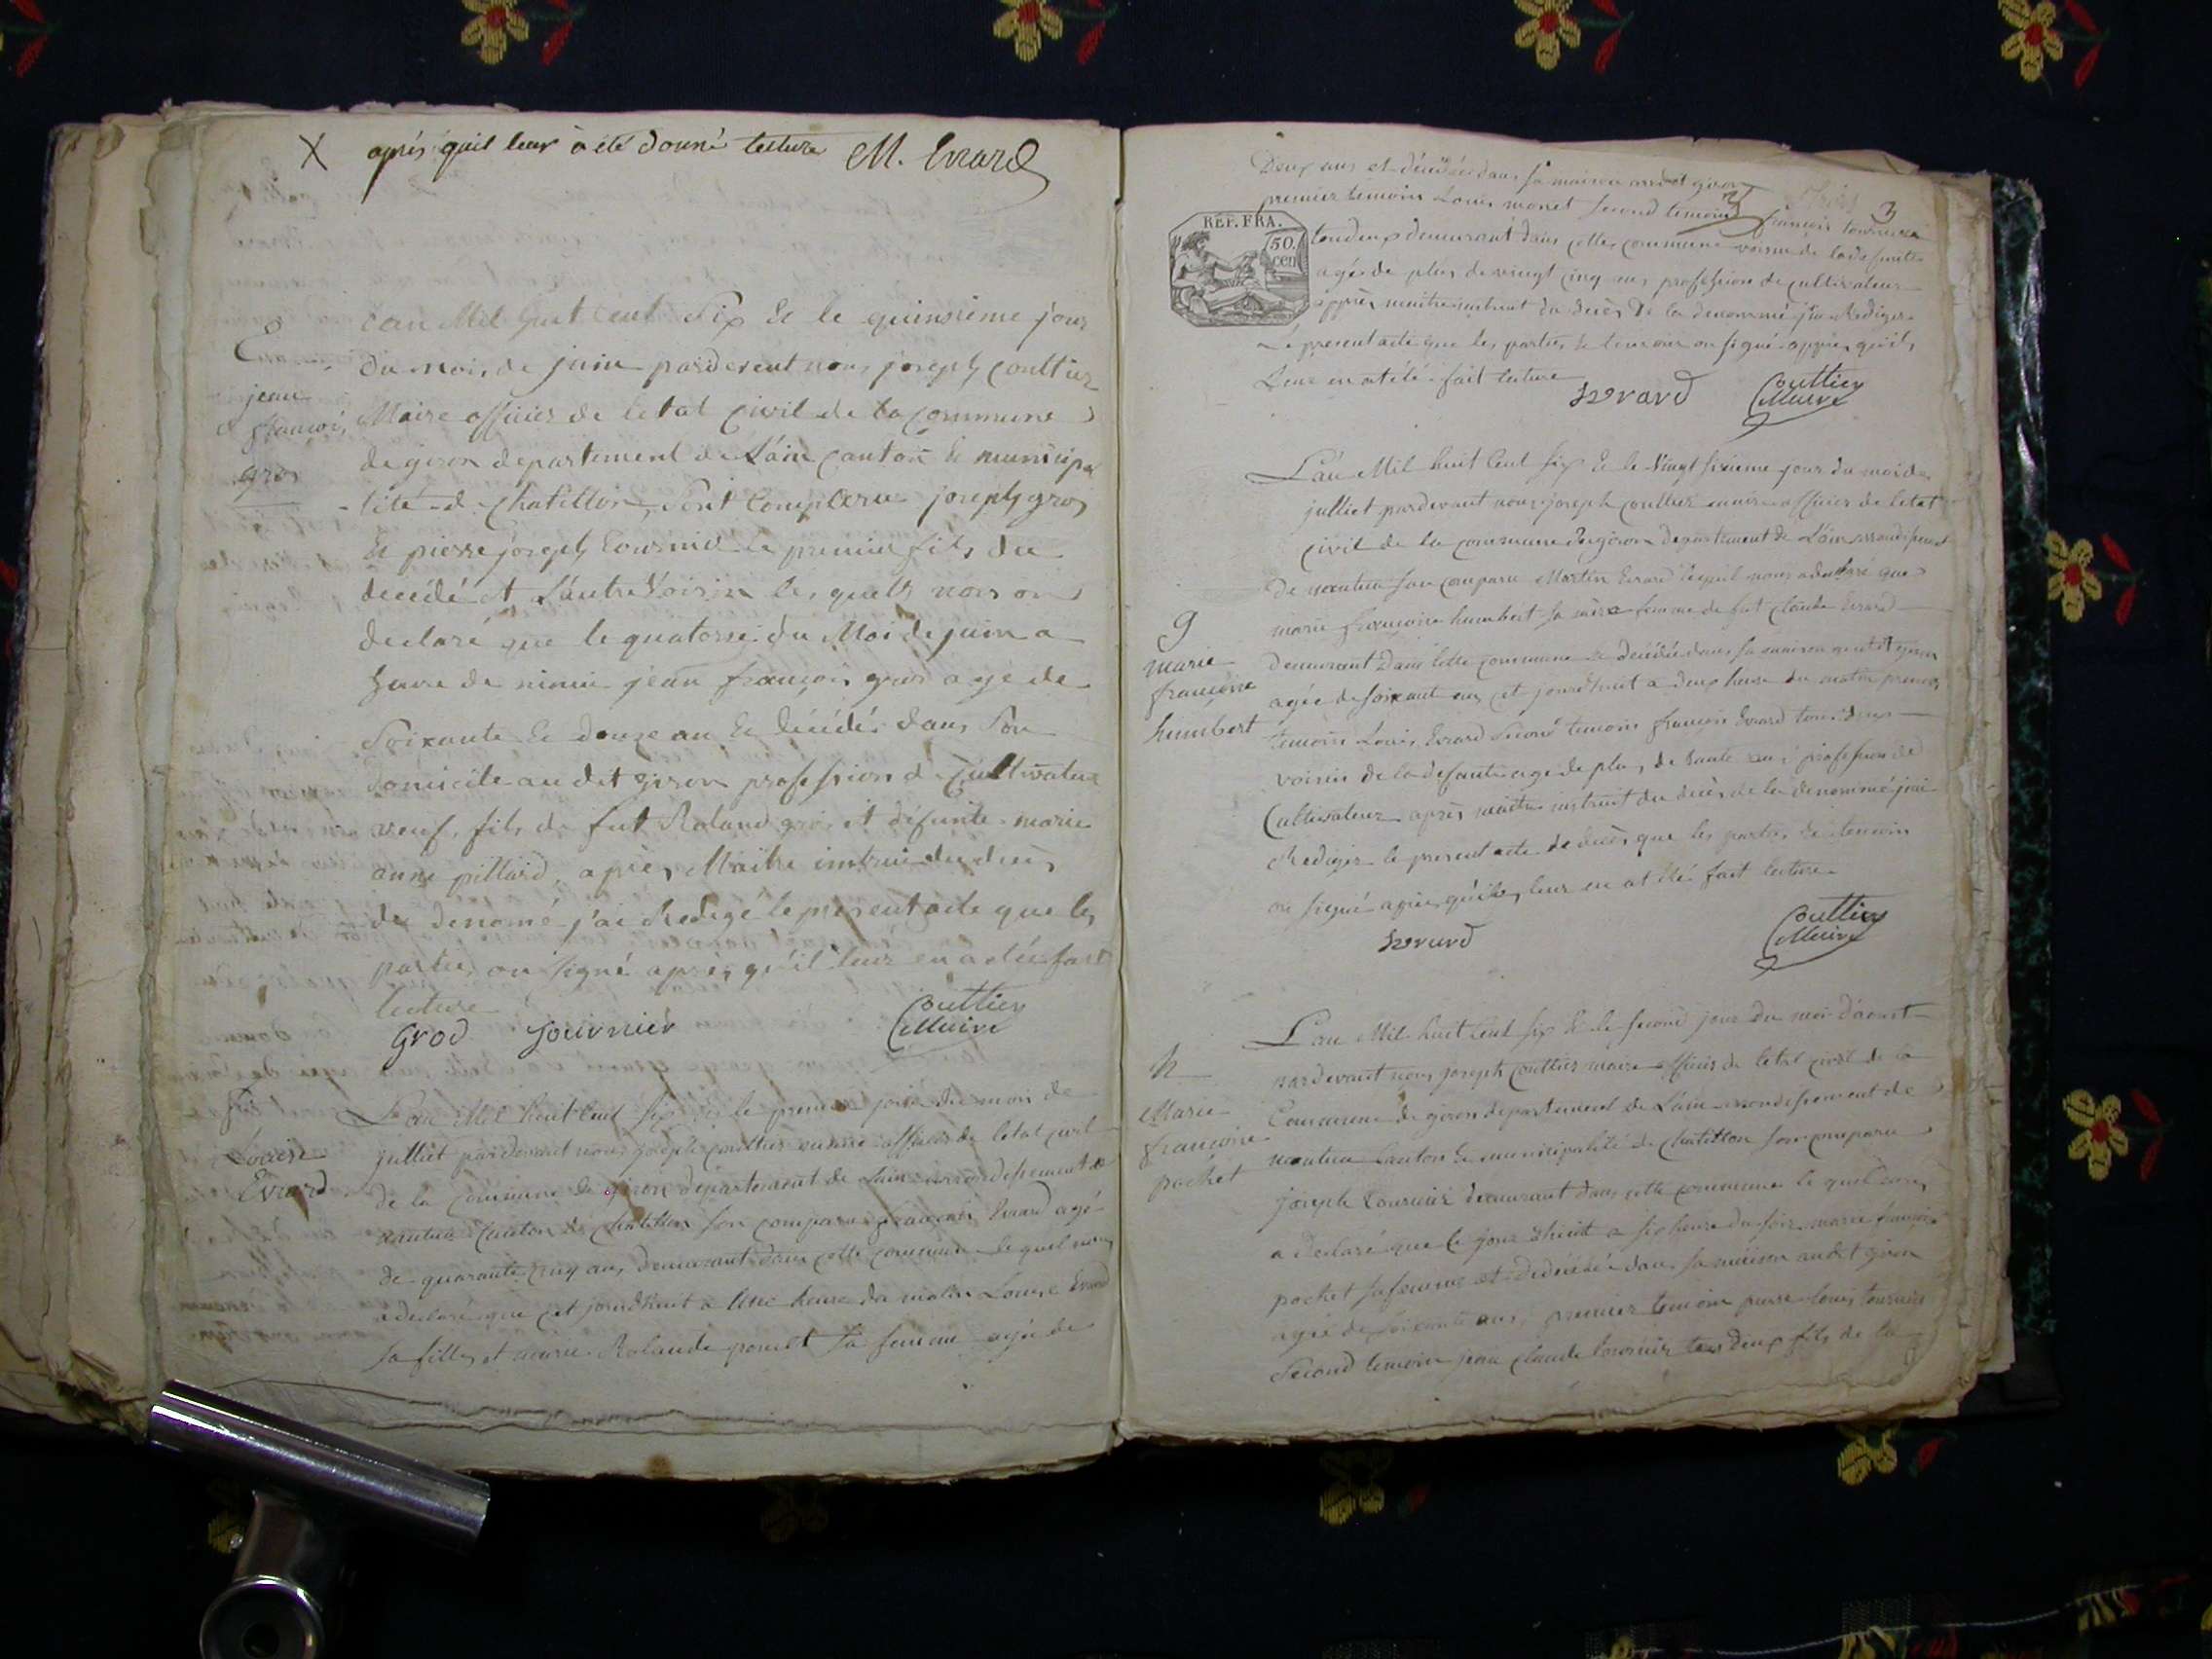 X après quil leur à été donné lecture M. Evrard
E
jean
françois
gros
Lan Mil huit cent six & le quinsième jour
du mois de juin pardevent nous joseph Couttier
Maire officier de letat civil de la Commune
de giron departement de Láin Canton & municipa
lité d Chatillon, sont Comparu joseph gros
& pierre joseph tournier le premier fils du
décédé et Láutre Voisin les quels nous on
declaré que le quatorse du Moi de juin a
heure de jean françois gros agé de
Soixante & douze an & décédé dans son
domicile au dit giron profession d Cultivateur
veuf, fils de fut Roland gros et défunte marie
anne pillard, après M'aitre instrui du décès
du denomé j'ai Redigé le present acte que les
parties on signé après qu'il leur en a étée fait
lecture
Grod tournier Couttier Maire
F
Louise
Evrard
L'an Mil huit Cent six & le premier jour du mois de
julliet pardevant nous joseph Couttier maire officier de letat civil
de la Commune de giron departement de Láin arrondissement de
nantua Canton de Chatillon son comparu françois Evrard agé
de quarante cinq ans, demeurant dans cette commune le quel nous
a declaré que cet jourdhuit a heure du matin Louise Evrard
sa fille, et Rolande poncet sa femme agée de
Deux ans et décédée dans sa maison audit giron
premier temoins Louis monet second temoins françois tournier
3
3
REP. FRA.
50.
cen
tou deux demeurant dans cette commune voisin de la defunte
agé de plus de vingt cinq ans, profession de cultivateur
apprès m'aitre instruit du décès De la denommé j'ai Rediger
le present acte que les parties & temoin on signé apprès qu'il
Leur en at été fait lecture
Evrard Couttier Maire
G
marie
françoise
humbert
L'án Mil huit Cent six & le Vingt sixieme jour du moi de
julliet pardevant nous joseph Couttier maire officier de letat
civil de la commune de giron departement de Láin arrondissement
de nantua son comparu Martin Evrard lequel nous a declaré que
marie françoise humbert sa mère femme de fut claude Evrard
demeurant Dans cette commune & decédée dans sa maison au dit giron
agée de soixant ans, cet jourdhuit a deux heure du matin premier
temoin Louis Evrard Second temoin françois Evrard tou deux
voisin de la defunte agé de plus, de trante ans, profession de
Cultivateur après m'aitre instruit du décès de la denommé j'ai
Rediger le present acte de décès que les parties & temoin
on signé après qu'il leur en at été fait lecture
Evrard Couttier Maire
h
Marie
françoise
pochet
L'an Mil huit Cent six & le second jour du moi d'aoust
pardevant nous joseph Couttier maire officier de letat civil de la
Commune de giron departement de Láin arrondissement de
nantua Canton & municipalité de Chatillon son comparu
joseph tournier demeurant dans cette commune le quel nous
a declaré que Ce jour dhuit a six heure du soir marie françoise
pochet sa femme et dedécédée dans sa maison audit giron
agée de soixante ans, premier temoin pierre Louis tournier
Second temoin jean claude tournier tous deux fils de la